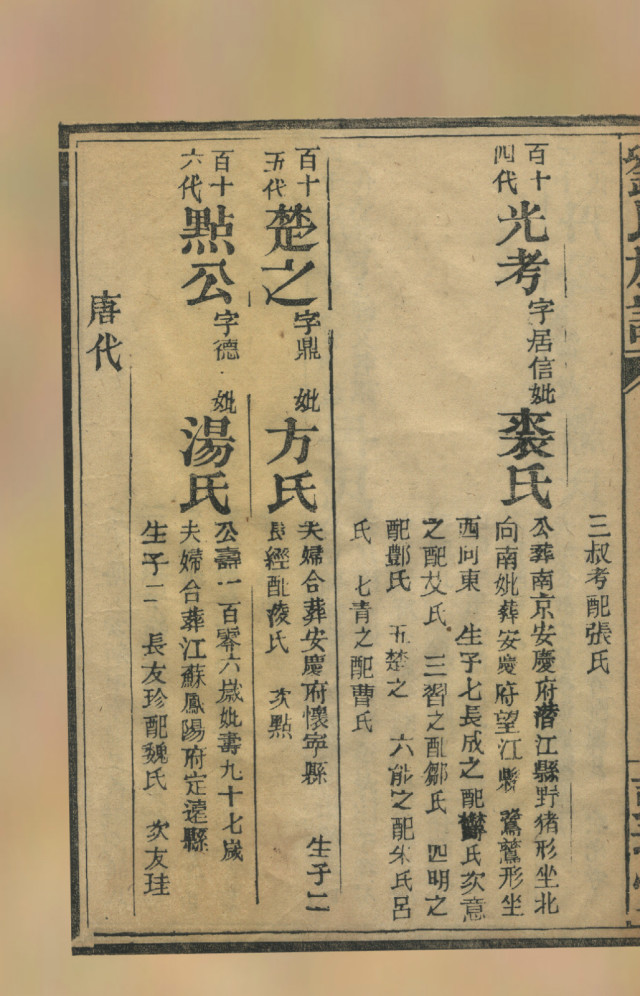 三叔考配張氏
百十四代
光考
字居信妣
裘氏
公葬南京安慶府潛江縣野猪形坐北
向南妣葬安慶府望江縣 鷺鷥形坐
西向東 生子七長成之配欝氏次意
之配艾氏 三習之配鄒氏 四明之
配鄧氏 五楚之 六能之配朱氏呂
氏 七青之配曹氏
百十五代
楚之
字鼎 妣
方氏
夫婦合葬安慶府懷寧縣 生子二
長經配淩氏 次點
百十六代
點公
字德 妣
湯氏
公壽一百零六歲妣壽九十七歲
夫婦合葬江蘇鳳陽府定遠縣
生子二 長友珍配魏氏 次友珪
唐代